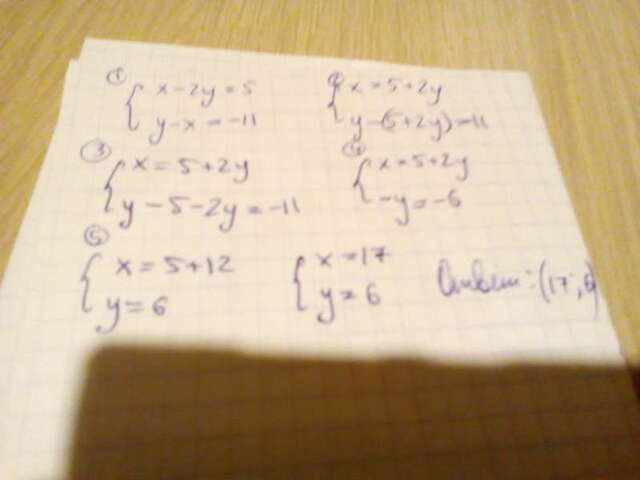 ① x - 2y = 5
y - x = -11
② x = 5 + 2y
y - (5 + 2y) = -11
③ x = 5 + 2y
y - 5 - 2y = -11
④ x = 5 + 2y
-y = -6
⑤ x = 5 + 12
y = 6
x = 17
y = 6
Ответ: (17; 6)